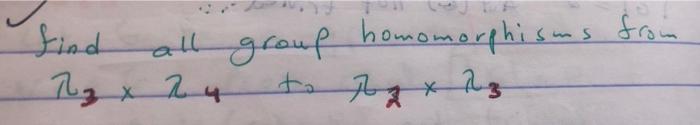 find all group homomorphisms from
ℤ₃ × ℤ₄ to ℤ₂ × ℤ₃